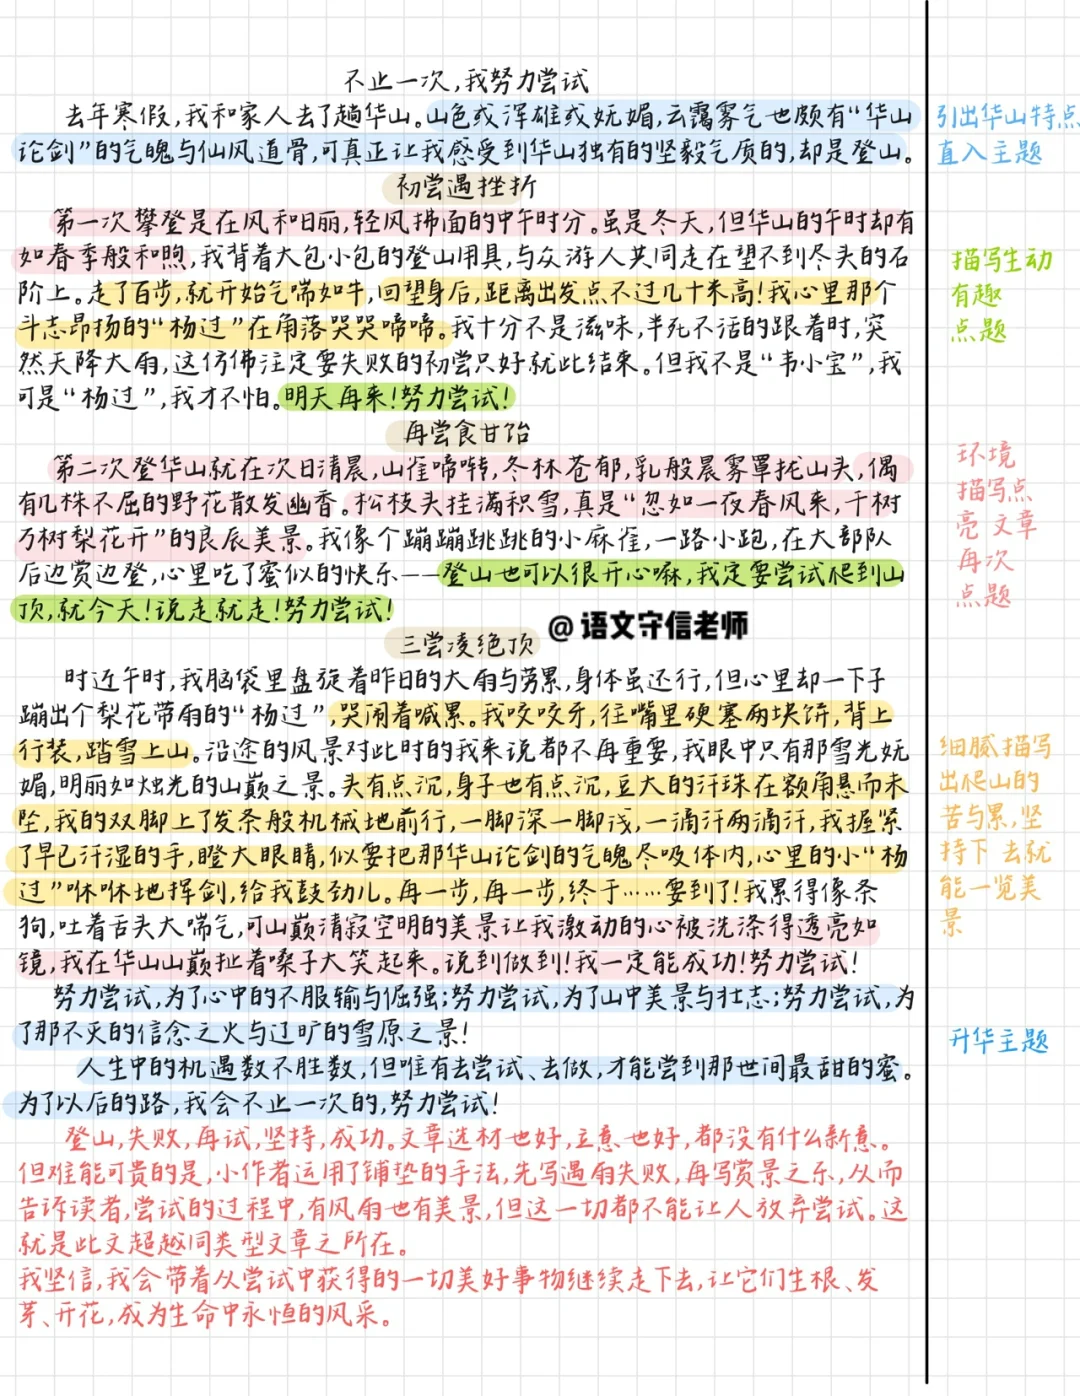 不止一次,我努力尝试
去年寒假,我和家人去了趟华山。山色或浑雄或妩媚,云霭雾气也颇有“华山
论剑”的气魄与仙风道骨,可真正让我感受到华山独有的坚毅气质的,却是登山。
引出华山特点
直入主题
初尝遇挫折
第一次攀登是在风和日丽,轻风拂面的中午时分。虽是冬天,但华山的午时却有
如春季般和煦,我背着大包小包的登山用具,与众游人共同走在望不到尽头的石
阶上。走了百步,就开始气喘如牛,回望身后,距离出发点不过几十米高!我心里那个
斗志昂扬的“杨过”在角落哭哭啼啼。我十分不是滋味,半死不活的跟着时,突
然天降大雨,这仿佛注定要失败的初尝只好就此结束。但我不是“韦小宝”,我
可是“杨过”,我才不怕。明天再来!努力尝试!
描写生动
有趣
点题
再尝食甘饴
第二次登华山就在次日清晨,山雀啼啭,冬林苍郁,乳般晨雾罩拢山头,偶
有几株不屈的野花散发幽香。松枝头挂满积雪,真是“忽如一夜春风来,千树
万树梨花开”的良辰美景。我像个蹦蹦跳跳的小麻雀,一路小跑,在大部队
后边赏边登,心里吃了蜜似的快乐——登山也可以很开心嘛,我定要尝试爬到山
顶,就今天!说走就走!努力尝试!
环境
描写点
亮 文章
再次
点题
@语文守信老师
三尝凌绝顶
时近午时,我脑袋里盘旋着昨日的大雨与劳累,身体虽还行,但心里却一下子
蹦出个梨花带雨的“杨过”,哭闹着喊累。我咬咬牙,往嘴里硬塞两块饼,背上
行装,踏雪上山。沿途的风景对此时的我来说都不再重要,我眼中只有那雪光妩
媚,明丽如烛光的山巅之景。头有点沉,身子也有点沉,豆大的汗珠在额角悬而未
坠,我的双脚上了发条般机械地前行,一脚深一脚浅,一滴汗两滴汗,我握紧
了早已汗湿的手,瞪大眼睛,似要把那华山论剑的气魄尽吸体内,心里的小“杨
过”咻咻地挥剑,给我鼓劲儿。再一步,再一步,终于……要到了!我累得像条
狗,吐着舌头大喘气,可山巅清寂空明的美景让我激动的心被洗涤得透亮如
镜,我在华山山巅扯着嗓子大笑起来。说到做到!我一定能成功!努力尝试!
细腻描写
出爬山的
苦与累,坚
持下 去就
能一览美
景
努力尝试,为了心中的不服输与倔强;努力尝试,为了山中美景与壮志;努力尝试,为
了那不灭的信念之火与辽旷的雪原之景!
人生中的机遇数不胜数,但唯有去尝试、去做,才能尝到那世间最甜的蜜。
为了以后的路,我会不止一次的,努力尝试!
升华主题
登山,失败,再试,坚持,成功。文章选材也好,立意也好,都没有什么新意。
但难能可贵的是,小作者运用了铺垫的手法,先写遇雨失败,再写赏景之乐,从而
告诉读者,尝试的过程中,有风雨也有美景,但这一切都不能让人放弃尝试。这
就是此文超越同类型文章之所在。
我坚信,我会带着从尝试中获得的一切美好事物继续走下去,让它们生根、发
芽、开花,成为生命中永恒的风采。